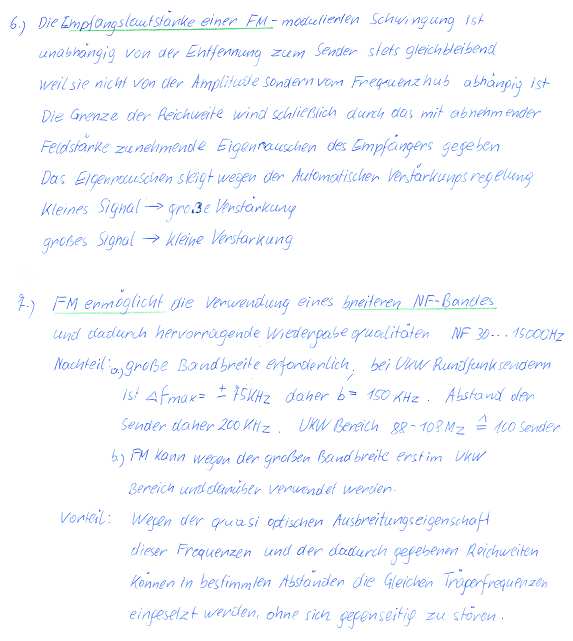 6.) Die Empfangslautstärke einer FM-modulierten Schwingung ist
unabhängig von der Entfernung zum Sender stets gleichbleibend
weil sie nicht von der Amplitude sondern vom Frequenzhub abhängig ist
Die Grenze der Reichweite wird schließlich durch das mit abnehmender
Feldstärke zunehmende Eigenrauschen des Empfängers gegeben
Das Eigenrauschen steigt wegen der Automatischen Verstärkungsregelung
kleines Signal → große Verstärkung
großes Signal → kleine Verstärkung
7.) FM ermöglicht die Verwendung eines breiteren NF-Bandes
und dadurch hervorragende Wiedergabequalitäten NF 30...15000Hz
Nachteil: a.) große Bandbreite erforderlich, bei UKW Rundfunksendern
ist Δfmax = ± 75KHz daher b = 150 KHz. Abstand der
Sender daher 200 KHz. UKW Bereich 88-108 Mz ≙ 100 Sender
b.) FM kann wegen der großen Bandbreite erst im UKW
Bereich und darüber verwendet werden.
Vorteil: Wegen der quasi optischen Ausbreitungseigenschaft
dieser Frequenzen und der dadurch gegebenen Reichweiten
können in bestimmten Abständen die Gleichen Trägerfrequenzen
eingesetzt werden, ohne sich gegenseitig zu stören.